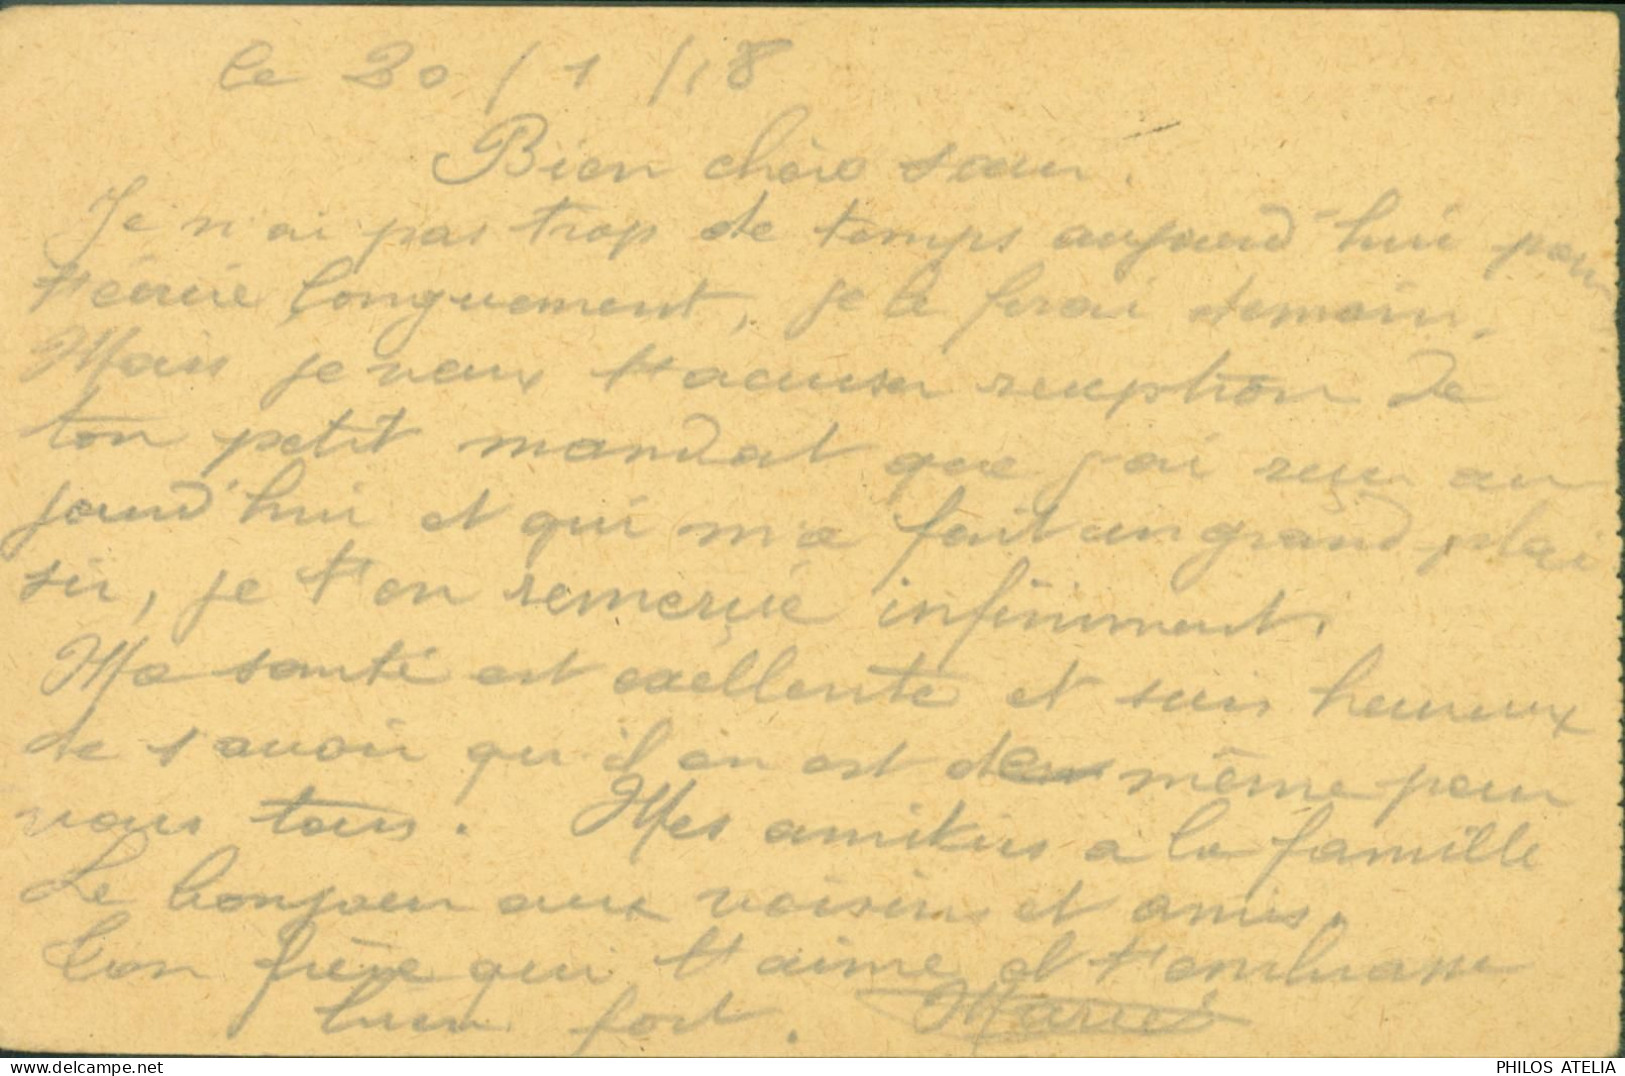 le 20/1/18
Bien chère soeur.
Je n'ai pas trop de temps aujourd'hui pour
t'écrire longuement, je le ferai demain.
Mais je veux t'accuser reception de
ton petit mandat que j'ai reçu au
jourd'hui et qui m'a fait un grand plai
sir, je t'en remerçie infiniment.
Ma santé est exellente et suis heureux
de savoir qu'il en est de même pour
vous tous. Mes amitiés a la famille
Le bonjour aux voisins et amis.
Ton frère qui t'aime et t'embrasse
bien fort.
delcampe.net
PHILOS ATELIA